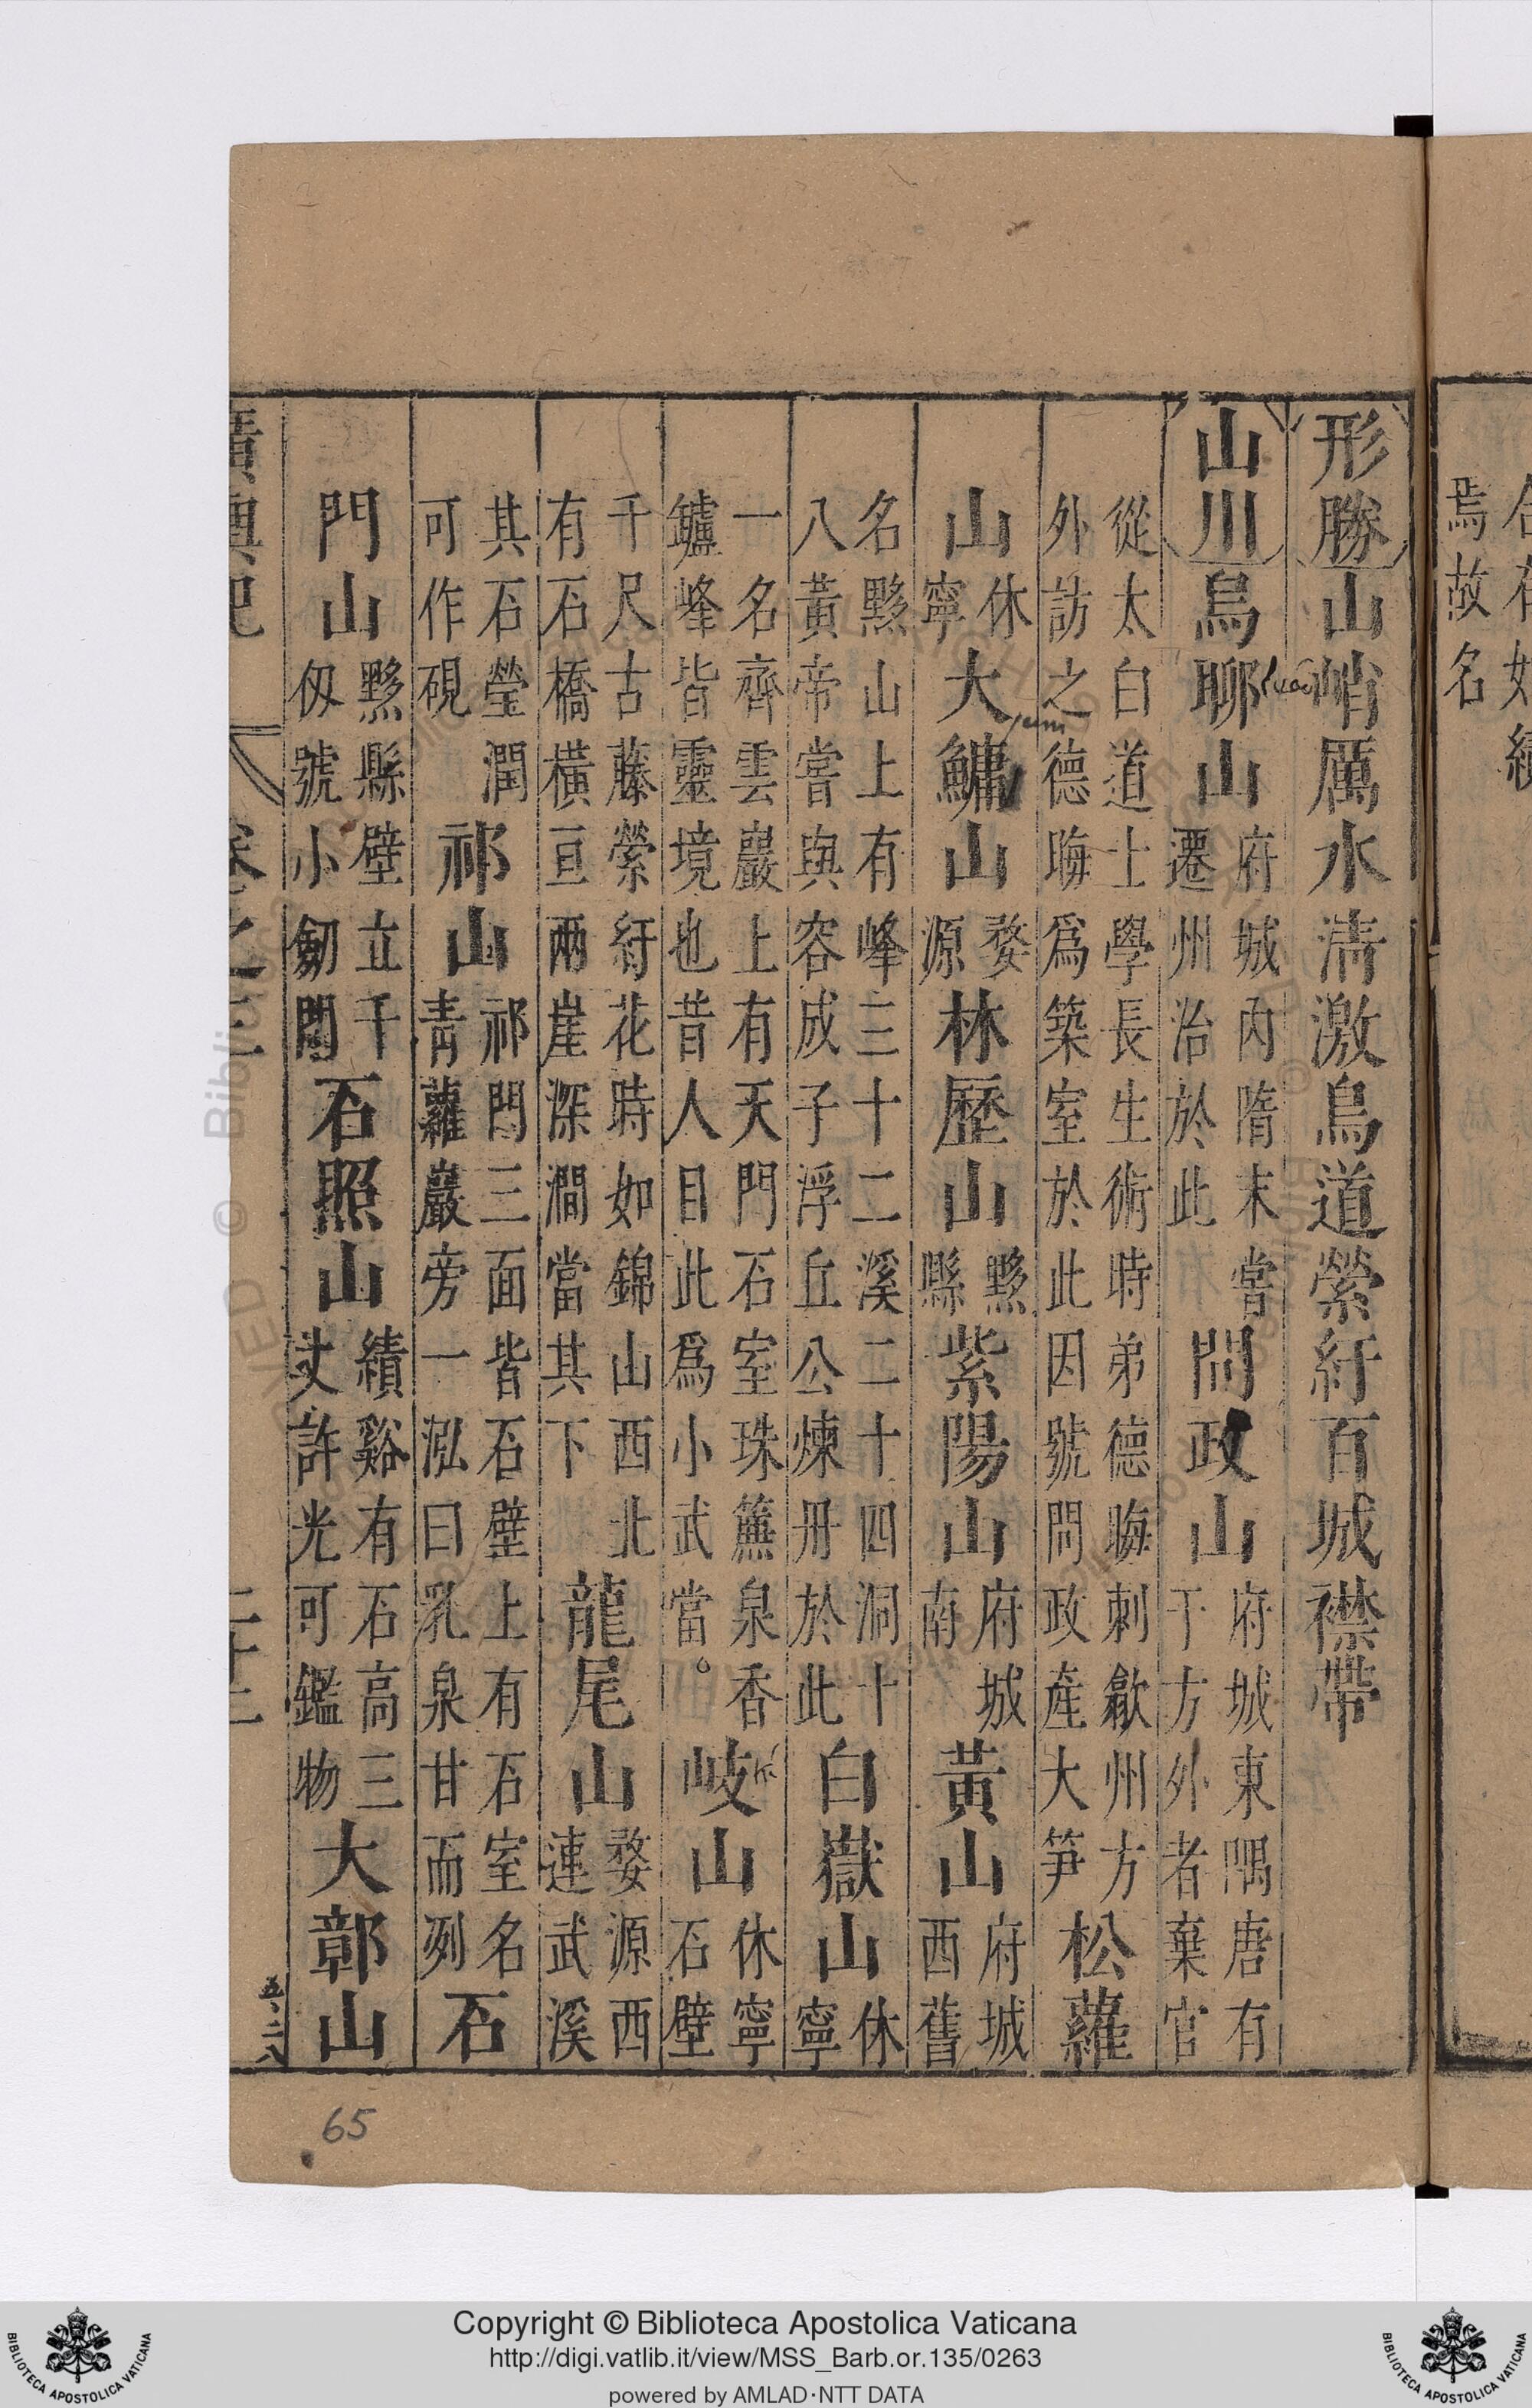 焉故名
形勝山峭厲水清激鳥道縈紆百城襟帶
山川烏聊山府城內隋末嘗遷州治於此問政山府城東隅唐有于方外者棄官
從太白道士學長生術時弟德晦刺歙州方外訪之德晦爲築室於此因號問政產大笋松蘿
山休寧大鱅山婺源林歷山黟縣紫陽山府城南黃山府城西舊
名黟山上有峰三十二溪二十四洞十八黃帝嘗與容成子浮丘公煉丹於此白嶽山休寧
一名齊雲巖上有天門石室珠簾泉香鑪峰皆靈境也昔人目此爲小武當岐山休寧石壁
千尺古藤縈紆花時如錦山西北有石橋橫亘兩崖深澗當其下龍尾山婺源西連武溪
其石瑩潤可作硯祁山祁門三面皆石壁上有石室名青蘿巖旁一泓曰乳泉甘而冽石
門山黟縣壁立千仭號小劒閣石照山績谿有石高三丈許光可鑑物大鄣山
廣輿記
卷之三
二十二
65
Copyright © Biblioteca Apostolica Vaticana
http://digi.vatlib.it/view/MSS_Barb.or.135/0263
powered by AMLAD·NTT DATA
BIBLIOTECA APOSTOLICA VATICANA
BIBLIOTECA APOSTOLICA VATICANA